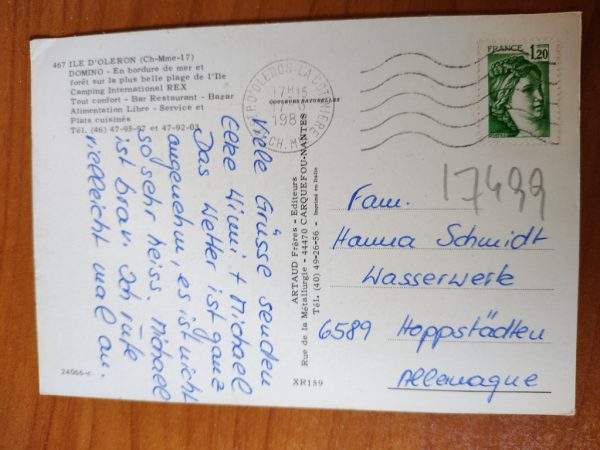 467 ILE D'OLERON (Ch-Mme-17)
DOMINO - En bordure de mer et
forêt sur la plus belle plage de l'Ile
Camping International REX
Tout confort - Bar Restaurant - Bazar
Alimentation Libre - Service et
Plats cuisinés
Tél. (46) 47-95-97 et 47-92-03
Viele Grüsse senden
Elke Wimi + Michael
Das Wetter ist ganz
angenehm, es ist nicht
so sehr heiss. Michael
ist brav. Ich rufe
vielleicht mal an.
24066-c
COULEURS NATURELLES
ARTAUD Frères - Editeurs
Rue de la Métallurgie - 44470 CARQUEFOU-NANTES
Tél. (40) 49-26-56 - Imprimé en Italie
XR159
17H15
FRANCE 1,20
17499
Fam.
Hanna Schmidt
Wasserwerk
6589 Hoppstädten
Allemagne